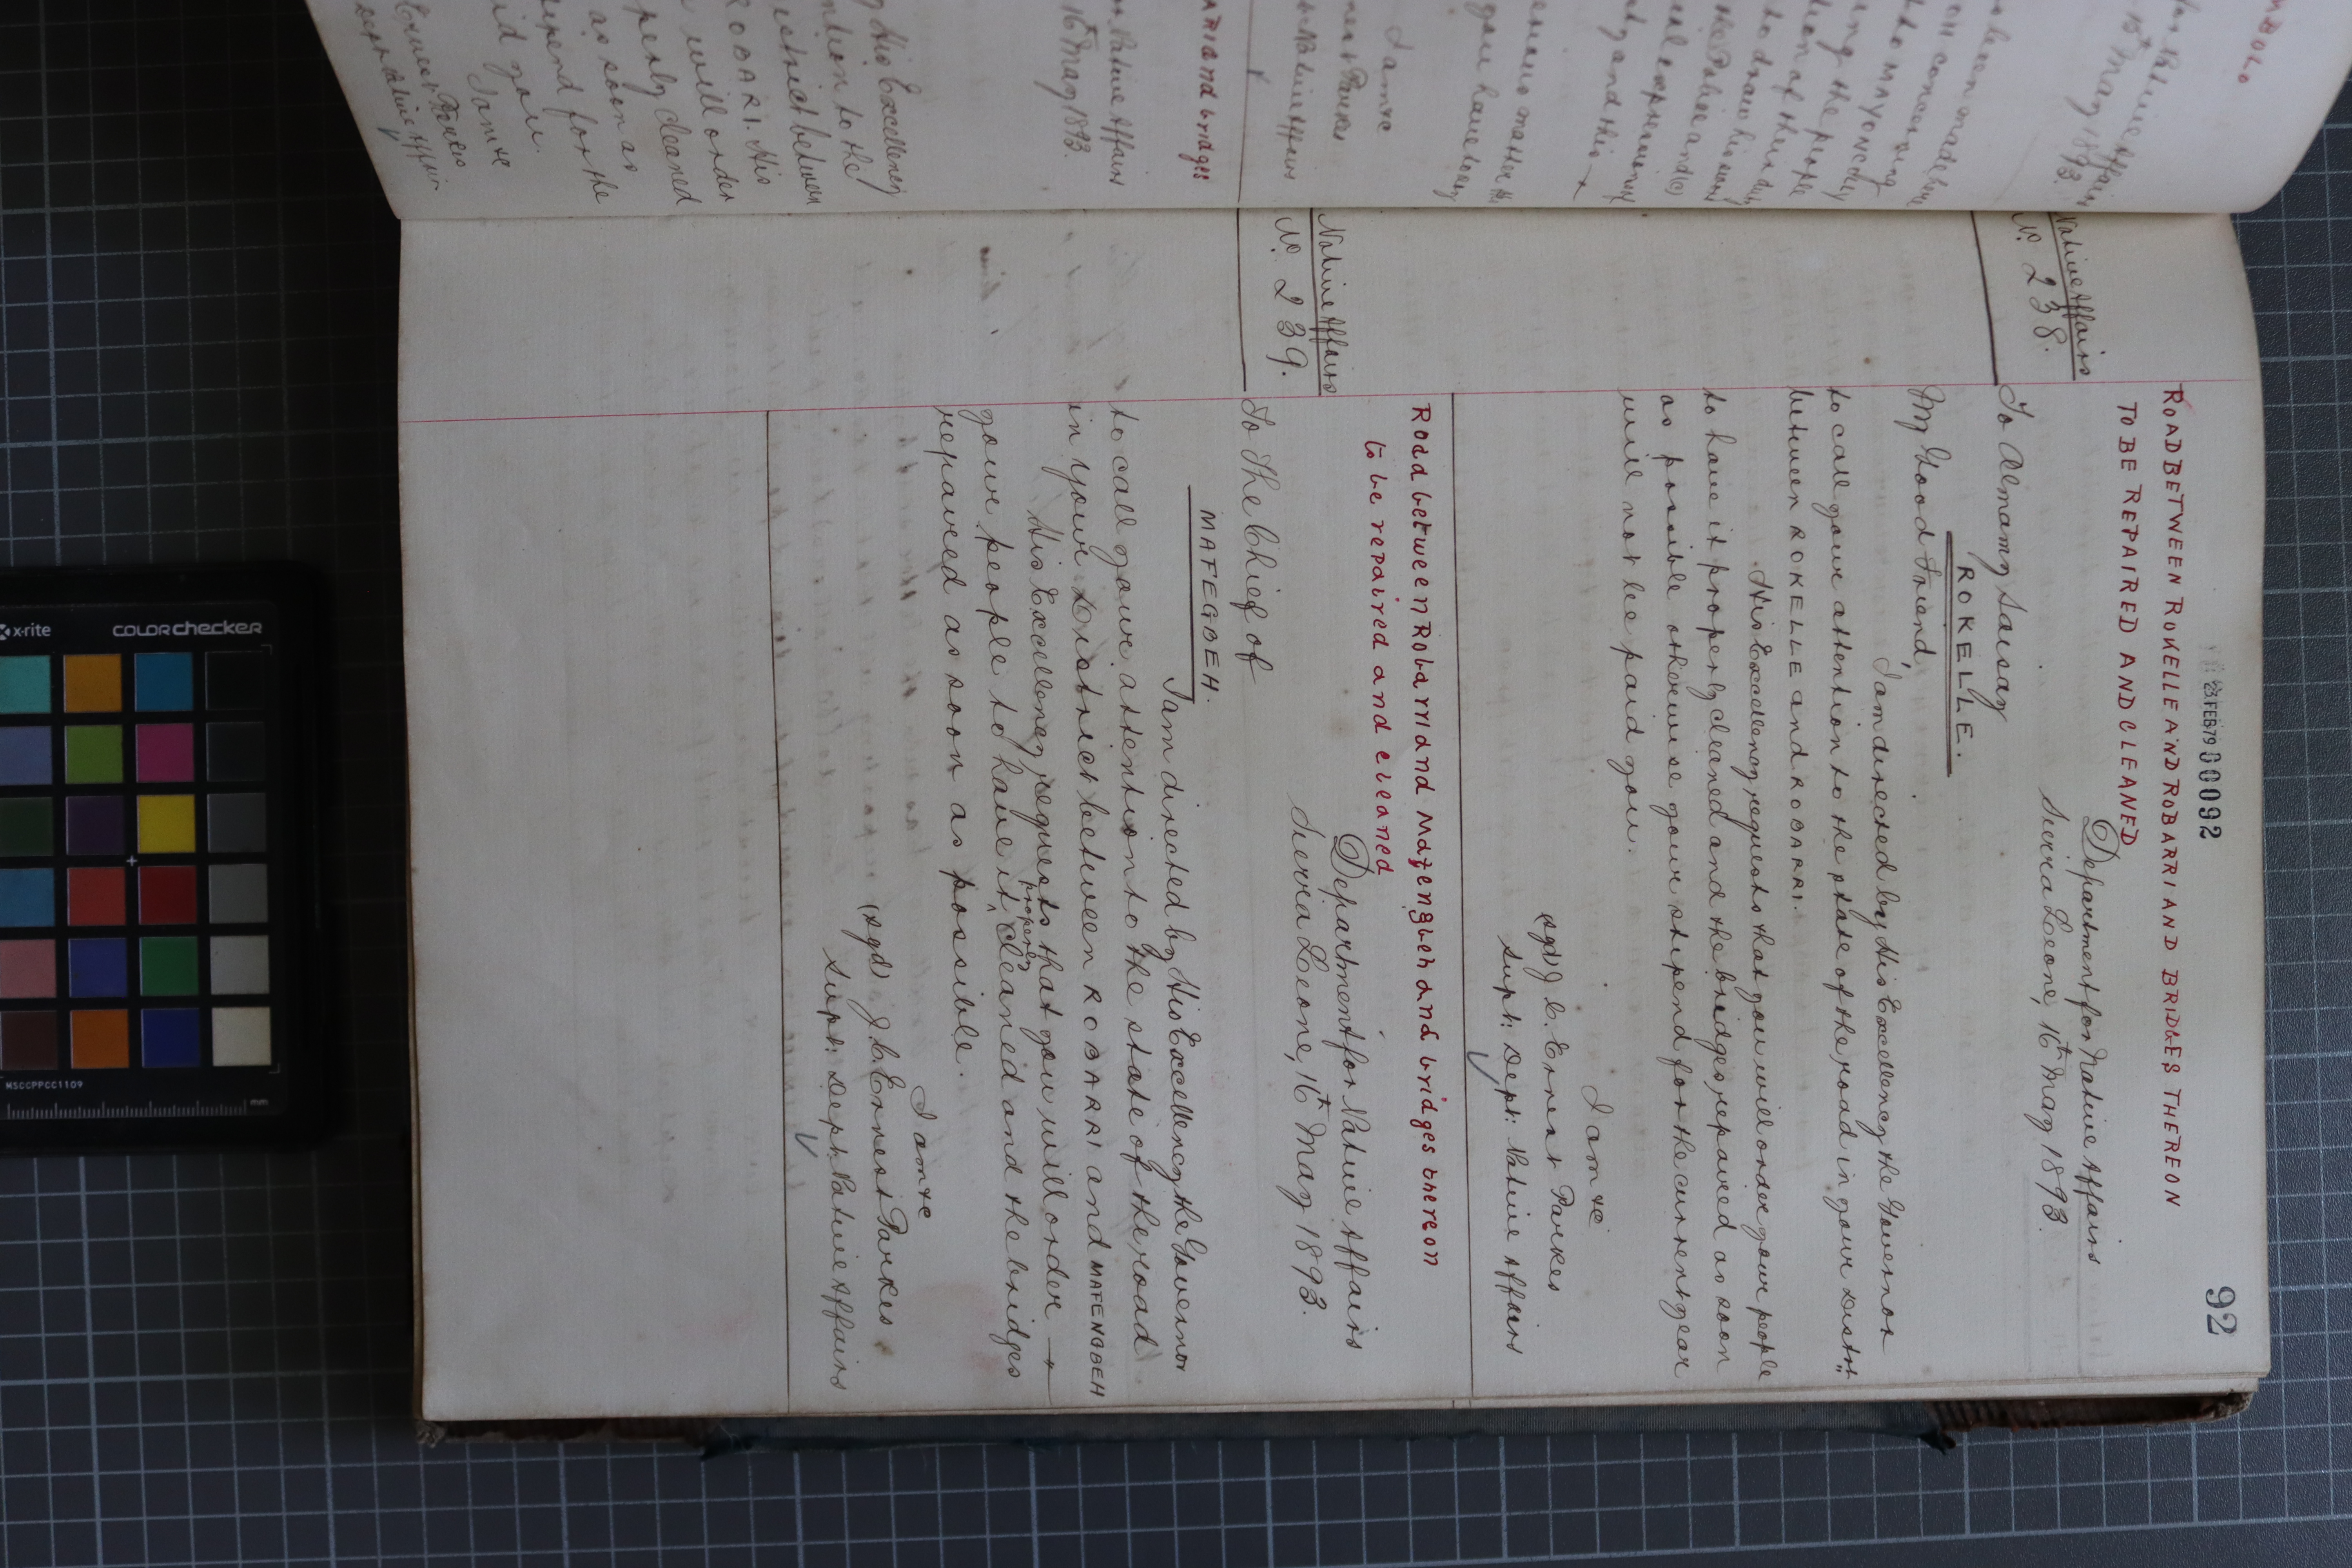 23 FEB 79 00092
92
ROAD BETWEEN ROKELLE AND ROBARRI AND BRIDGES THEREON
TO BE REPAIRED AND CLEANED
Native Affairs
No. 238.
Department for Native Affairs
Sierra Leone, 16th May 1893.
To Almamy Saisay
ROKELLE.
My Good Friend,
I am directed by His Excellency the Governor
to call your attention to the state of the road in your Distrt
between ROKELLE and ROBARRI.
His Excellency requests that you will order your people
to have it properly cleaned and the bridges repaired as soon
as possible otherwise your stipend for the current year
will not be paid you.
I am &c
(sgd) J. C. Ernest Parkes
Supt: Dept: Native Affairs
Road between Robarri and Mafengbeh and bridges thereon
to be repaired and cleaned
Native Affairs
No. 239.
Department for Native Affairs
Sierra Leone, 16th May 1893.
To The Chief of
MAFEGBEH.
I am directed by His Excellency the Governor
to call your attention to the state of the road
in your District between ROBARRI and MAFENGBEH
His Excellency requests that you will order
your people to have it properly cleaned and the bridges
repaired as soon as possible.
I am &c
(sgd) J. C. Ernest Parkes
Supt: Dept: Native Affairs
Native Affairs
16th May 1893.
His Excellency
district between
ROBARI. His
will order
cleaned
as soon as
for the
you.
I am &c
Ernest Parkes
Native Affairs
and bridges
x-rite
colorchecker
MSCCPPCC1109
mm